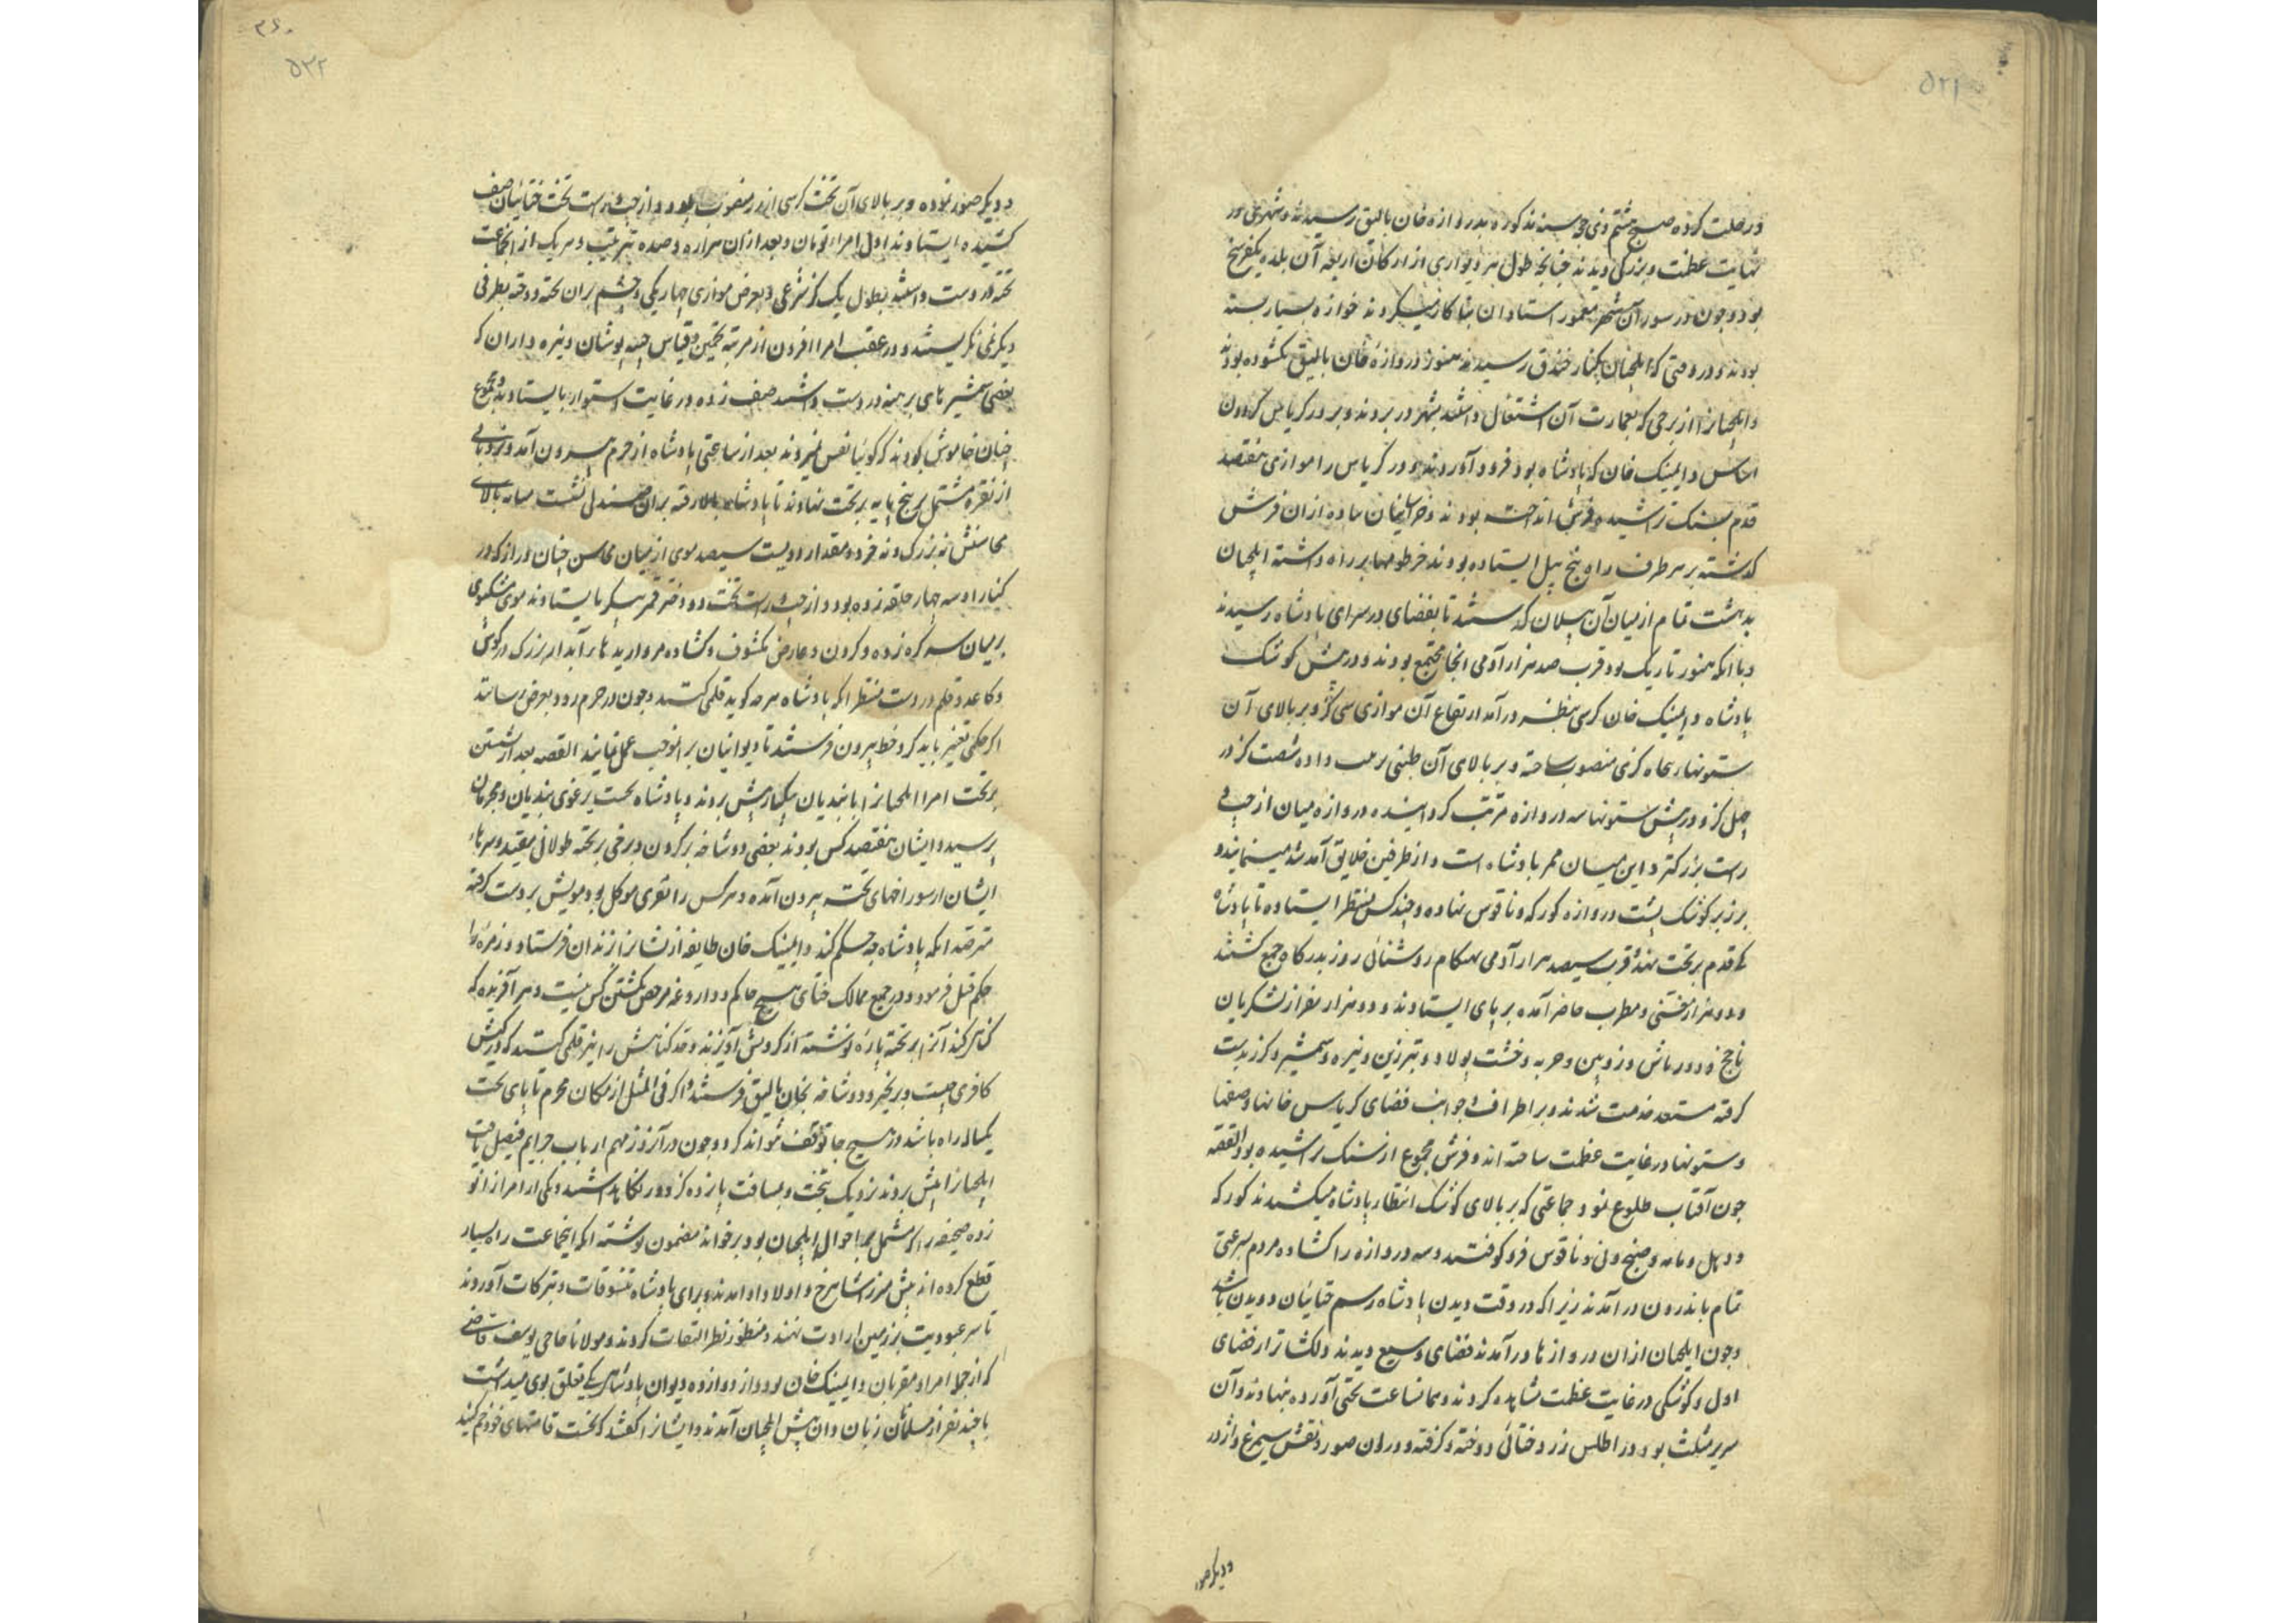 ۵۲۱
و رحلت کرده صبح هشتم ذی حجه سنه مذکوره بدروازه خان بالیق رسیدند و شهری در
نهایت عظمت و بزرگی دیدند چنانچه طول هر دیواری از ارکان اربعه آن بلده یکفرسخ
بود و چون در سور آن شهر معمور استادان بنا کار میکردند خوازه بسیار بسته
بودند و در وقتی که ایلچیان بکنار خندق رسیدند هنوز دروازه خان بالیق نکشوده بودند
و ایلچیانرا از برجی که بعمارت آن اشتغال داشتند بشهر در بردند و بر در کریاس کردون
اساس دایمینک خان که پادشاه بود فرود آوردند و در کریاس را موازی هفتصد
قدم بسنک تراشیده فرش انداخته بودند و خراسانیان پیاده از ان فرش
کذشته بر هر طرف راه پنج پیل ایستاده بودند خرطومها بر راه داشته ایلچیان
بدهشت تمام از میان آن پیلان کذشتند تا بفضای در سرای پادشاه رسیدند
و با آنکه هنوز تاریک بود قرب صد هزار آدمی آنجا مجتمع بودند و در پیش کوشک
پادشاه دایمینک خان کرسی بنظر درآمد ارتفاع آن موازی سی کز و بر بالای آن
ستونها پنجاه کزی منصوب ساخته و بر بالای آن طنبی ترتیب داده شصت کز در
چهل کز و در پیش ستونها سه دروازه مرتب کردانیده دروازه میان از چپ و
راست بزرکتر و این میان ممر پادشاه است و از طرفین خلایق آمد شد مینمایند و
بر زبر کوشک پشت دروازه کورکه و ناقوس نهاده و چند کس منتظر ایستاده تا پادشاه
کی قدم بر تخت نهد و قرب سیصد هزار آدمی هنکام روشنائی روز بدرکاه جمع کشتند
و دو هزار مغنی و مطرب حاضر آمده بر پای ایستادند و دو هزار نفر از لشکریان
ناچخ و دورباش و زوبین و حربه و خشت پولاد و تبرزین و نیزه و شمشیر و کرز بدست
کرفته مستعد خدمت شدند و بر اطراف و جوانب فضای کریاس خانها و صفها
و ستونها در غایت عظمت ساخته اند و فرش مجموع از سنک تراشیده بود القصه
چون آفتاب طلوع نمود جماعتی که بر بالای کوشک انتظار پادشاه میکشیدند کورکه
و دهل و دمامه و صنج و نی و ناقوس فرو کوفتند و سه دروازه را کشاده مردم بسرعتی
تمام باندرون درآمدند زیرا که در وقت دیدن پادشاه رسم ختائیان دویدن باشد
و چون ایلچیان از ان دروازها درآمدند فضای وسیع دیدند دلکشاتر از فضای
اول و کوشکی در غایت عظمت مشاهده کردند و همانساعت تختی آورده بنهادند و آن
سریر مثلث بود و در اطلس زرد ختائی دوخته و کرفته و در ان صورت و نقش سیمرغ و اژدر
و دیکر صور
۳۶۰
۵۲۲
و دیکر صور نموده و بر بالای آن تخت کرسی از زر منصوب بود و از چپ و راست تخت ختائیان صف
کشیده ایستادند اول امراء تومان و بعد از ان هزاره و صده بترتیب و هر یک از انجماعت
تخته در دست داشتند بطول یک کز شرعی و بعرض موازی چهار یکی و چشم بر ان تخته دوخته بطرفی
دیکر نمی نکریستند و در عقب امرا افزون از مرتبه تخمین و قیاس جیبه پوشان و نیزه داران که
بعضی شمشیرهای برهنه در دست داشتند صف زده در غایت استوار بایستادند و مجموع
چنان خاموش بودند که کوئیا نفس نمیزدند بعد از ساعتی پادشاه از حرم بیرون آمد و نردبانی
از نقره مشتمل بر پنج پایه بر تخت نهادند تا پادشاه بالا رفته بر ان صندلی نشست میانه بالای
محاسنش نه بزرک و نه خرد و مقدار دویست سیصد موی از میان محاسن چنان دراز که در
کنار او سه چهار حلقه زده بود و از چپ و راست تخت دو دختر قمر پیکر بایستادند موی مشکبوی
بر میان سر کره زده و کردن و عارض مکشوف و کشاده مرواریدهاء آبدار بزرک در کوش
و کاغذ و قلم در دست منتظر انکه پادشاه هر چه کوید قلمی کنند و چون در حرم رود بعرض رسانند
اکر حکمی تغییر باید کرد خط بیرون فرستند تا دیوانیان بر انموجب عمل نمایند القصه بعد از نشستن
بر تخت امرا ایلچیانرا با بندیان بیکبار پیش بردند و پادشاه نخست یرغوی بندیان و مجرمان
پرسید و ایشان هفتصد کس بودند بعضی دو شاخه بر کردن و برخی بر تخته طولانی مقید و سرهاء
ایشان از سوراخهای تخته بیرون آمده و هر کس را نفری موکل بود و مویش بر دست کرفته
مترصد انکه پادشاه چه حکم کند دایمینک خان طایفه از نشانرا بزندان فرستاد و زمره را
حکم قتل فرمود و در جمیع ممالک ختای هیچ حاکم و داروغه مرخص بکشتن کس نیست و هر آفریده که
کناهی کند آنرا بر تخته پاره نوشته از کردنش آویزند و حد کناهش را نیز قلمی کنند که در کیش
کافری چیست و بزنجیر و دو شاخه بخان بالیق فرستند و اکر فی المثل از مکان مجرم تا پای تخت
یکساله راه باشد در هیچ جا توقف نتواند کرد و چون در آنروز مهم ارباب جرایم فیصل یافت
ایلچیانرا پیش بردند نزدیک بتخت و بمسافت پانزده کز دور نکاه داشتند و یکی از امرا زانو
زده صحیفه را که مشتمل بر احوال ایلچیان بود بر خواند مضمون نوشته انکه اینجماعت راه بسیار
قطع کرده اند پیش میرزا شاهرخ و اولاد او آمدند و برای پادشاه تنسوقات و تبرکات آوردند
تا سر عبودیت بر زمین ارادت نهند و منظور نظر التفات کردند و مولانا حاجی یوسف قاضی
که از جمله امرا و مقربان دایمینک خان بود و از دوازده دیوان پادشاهی یکی تعلق بوی میداشت
با چند نفر از مسلمانان زبان دان پیش ایلچیان آمدند و ایشانرا کفتند که نخست قامتهای خود خم کنید